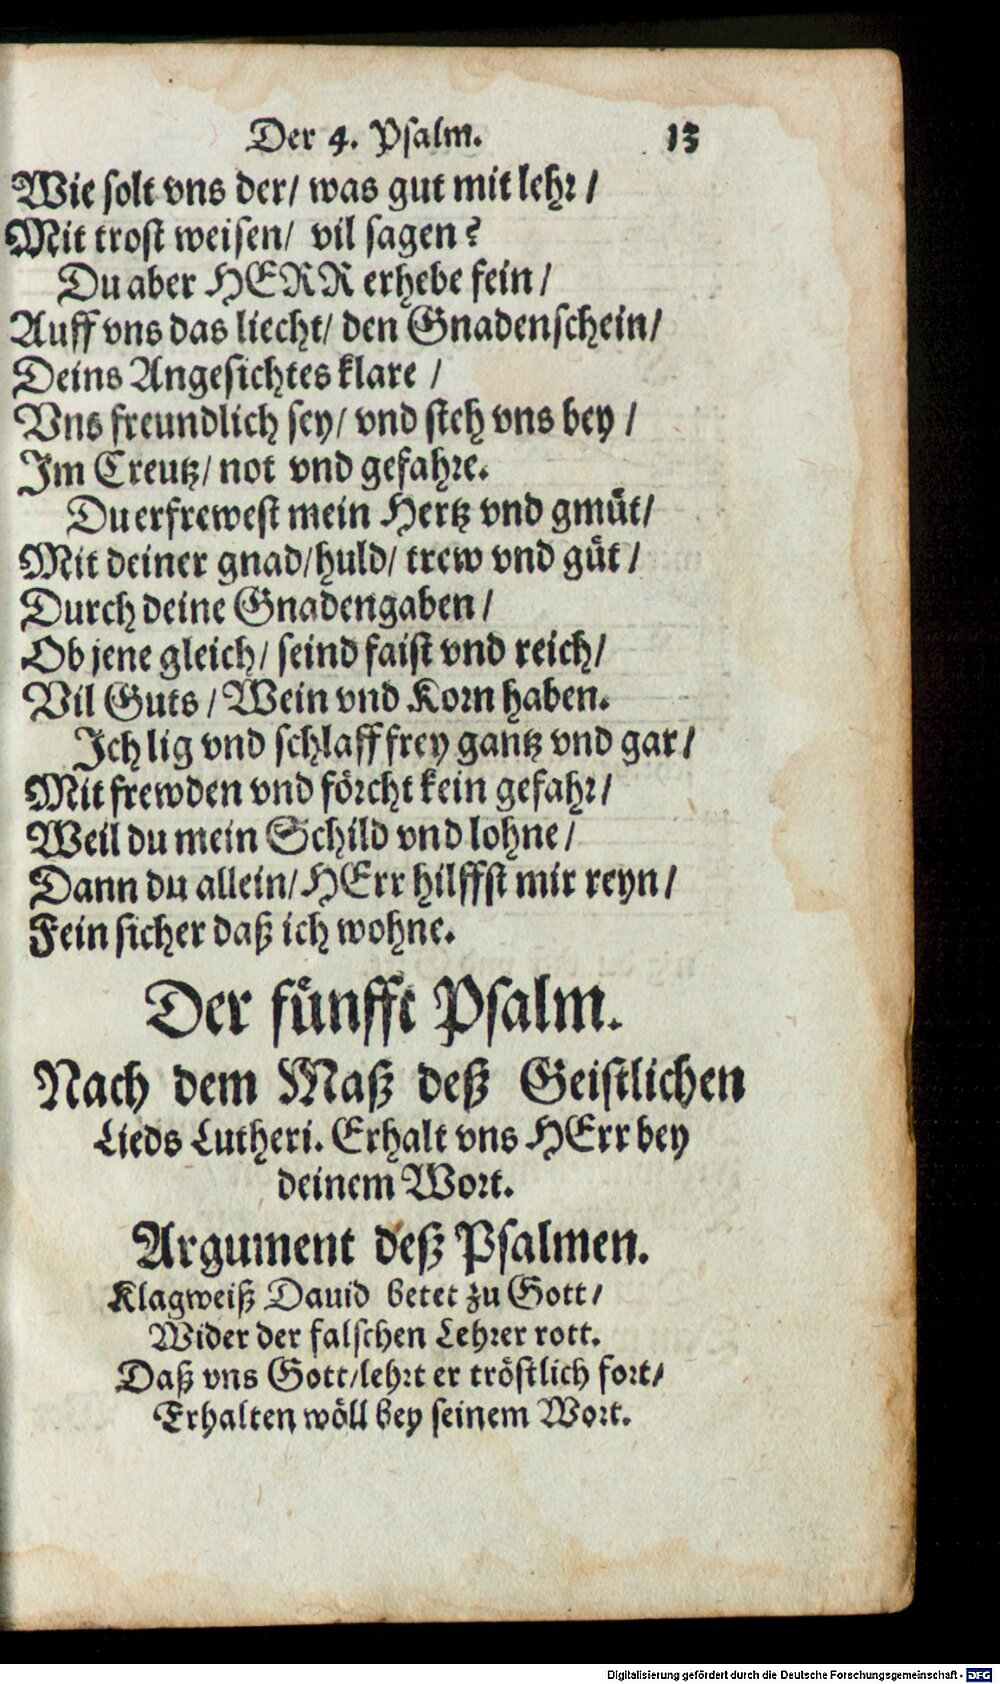 Der 4. Psalm. 13
Wie solt vns der/ was gut mit lehr/
Mit trost weisen/ vil sagen?
Du aber HERR erhebe fein/
Auff vns das liecht/ den Gnadenschein/
Deins Angesichtes klare /
Vns freundlich sey/ vnd steh vns bey /
Im Creutz/ not vnd gefahre.
Du erfrewest mein Hertz vnd gmüt/
Mit deiner gnad/ huld/ trew vnd güt /
Durch deine Gnadengaben /
Ob jene gleich/ seind faist vnd reich/
Vil Guts / Wein vnd Korn haben.
Ich lig vnd schlaff frey gantz vnd gar/
Mit frewden vnd förcht kein gefahr/
Weil du mein Schild vnd lohne/
Dann du allein/ HErr hilffst mir reyn/
Fein sicher daß ich wohne.
Der fünfft Psalm.
Nach dem Maß deß Geistlichen
Lieds Lutheri. Erhalt vns HErr bey
deinem Wort.
Argument deß Psalmen.
Klagweiß Dauid betet zu Gott/
Wider der falschen Lehrer rott.
Daß vns Gott/ lehrt er tröstlich fort/
Erhalten wöll bey seinem Wort.
Digitalisierung gefördert durch die Deutsche Forschungsgemeinschaft - DFG